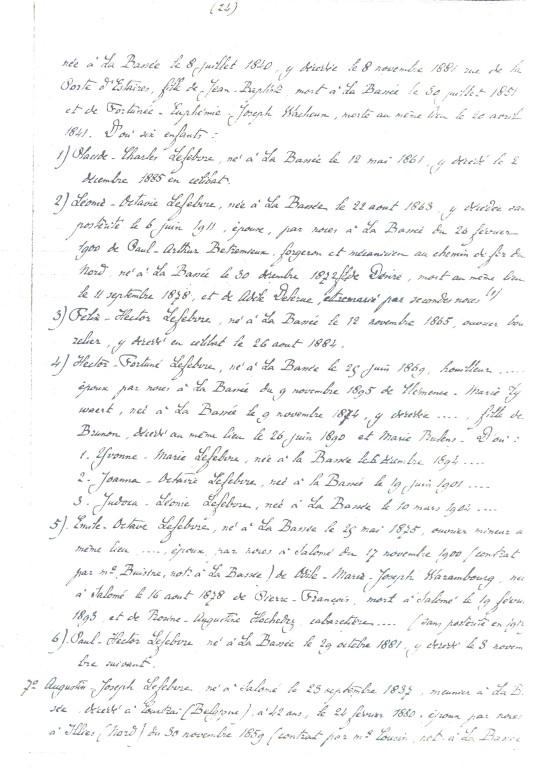 (24)
née à La Bassée le 8 juillet 1840, y décédée le 8 novembre 1881 rue de la
Porte d'Estaires, fille de Jean-Baptiste mort à La Bassée le 30 juillet 1851
et de Fortunée-Euphémie-Joseph Wacheux, morte au même lieu le 20 aout
1841. D'où six enfants :
1) Placide-Charles Lefebvre, né à La Bassée le 12 mai 1861, y décédé le 2
décembre 1885 en célibat.
2) Léonie-Octavie Lefebvre, née à La Bassée le 22 aout 1863 y décédée san
postérité le 6 juin 1911, épouse, par noces à La Bassée du 26 février
1900 de Paul-Arthur Betremieux, forgeron et mécanicien au chemin de fer du
Nord, né à La Bassée le 30 décembre 1872 fils de Désiré, mort au même lieu
le 11 septembre 1878, et de Adèle Delerue, et remarié par secondes noces (1)
3) Félix-Hector Lefebvre, né à La Bassée le 12 novembre 1865, ouvrier bou
relier, y décédé en célibat le 26 aout 1884.
4) Hector-Fortuné Lefebvre, né à La Bassée le 25 juin 1869, houilleur ....
époux par noces à La Bassée du 9 novembre 1895 de Clémence-Marie Ty
waert, née à La Bassée le 9 novembre 1874, y décédée ...., fille de
Brunon, décédé au même lieu le 26 juin 1890 et Marie Rubens. D'où :
1. Yvonne-Marie Lefebvre, née à la Bassée le 6 décembre 1894 ....
2. Joanna-Octavie Lefebvre, née à la Bassée le 19 juin 1901 ....
3. Judoca-Léonie Lefebvre, née à La Bassée le 10 mars 1904 ....
5). Emile-Octave Lefebvre, né à La Bassée le 25 mai 1875, ouvrier mineur a
même lieu ...., époux, par noces à Salomé du 17 novembre 1900 (contrat
par me. Buisine, not. à La Bassée) de Odile-Marie-Joseph Warambourg, née
à Salomé le 16 aout 1878 de Pierre-François, mort à Salomé le 19 févrie
1893 et de Rosine-Augustine Hochedez, cabaretière .... (sans postérité en 1912
6). Paul-Hector Lefebvre, né à La Bassée le 29 octobre 1881, y décédé le 3 novem
bre suivant.
7° Augustin Joseph Lefebvre, né à Salomé le 23 septembre 1837, meunier à La B.
sée, décédé à Courtrai (Belgique), à 42 ans, le 24 février 1880. époux par noces
à Illies (Nord) du 30 novembre 1859 (contrat par me. Cousin, not. à La Bassée